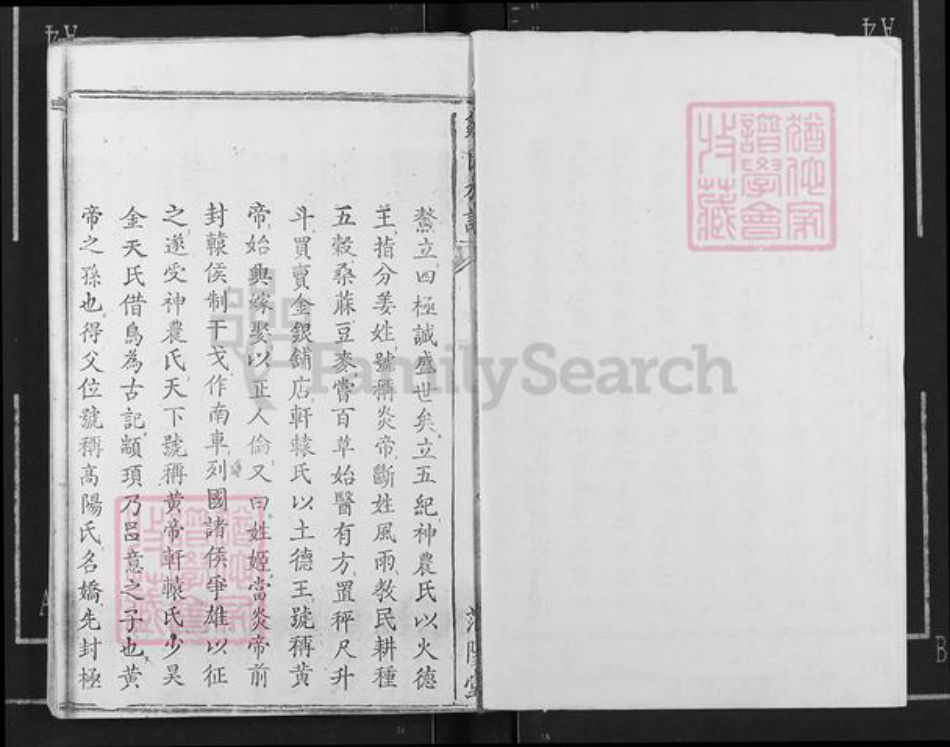 鰲立四極誠盛世矣立五紀神農氏以火德
王指分姜姓號稱炎帝斷姓風雨教民耕種
五穀桑蔴豆麥嘗百草始醫有方置秤尺升
斗買賣金銀舖店軒轅氏以土德王號稱黃
帝始與嫁娶以正人倫又曰姓姬當炎帝前
封轅侯制干戈作南車列國諸侯爭雄以征
之遂受神農氏天下號稱黃帝軒轅氏少昊
金天氏借鳥為古記顓頊乃呂意之子也黃
帝之孫也得父位號稱高陽氏名嬌先封極
譜學會
收藏
FamilySearch
A4
A4
B